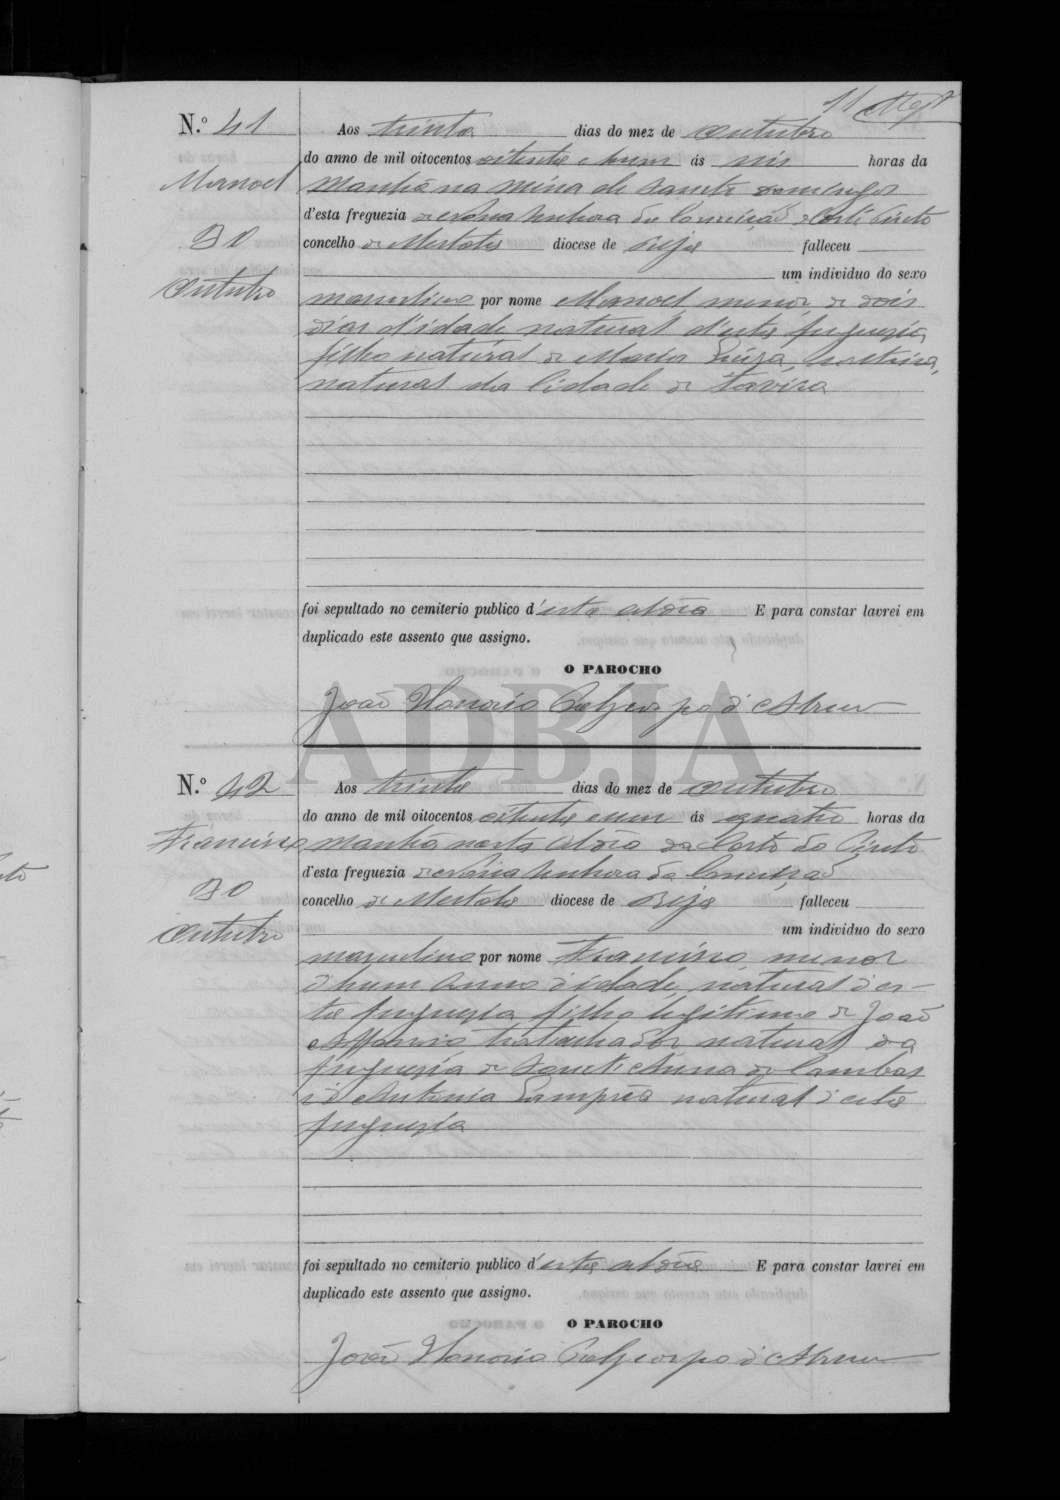 11
N.º 41 Aos trinta dias do mez de Outubro
do anno de mil oitocentos oitenta e hum ás seis horas da
Manoel manhã na Mina de Sancto Domingos
d'esta freguezia de Nossa Senhora da Conceição
30 concelho de Mertola diocese de Beja falleceu
um individuo do sexo
Outubro masculino por nome Manoel, menor, de dois
dias d'idade, natural d'esta freguezia,
filho natural de Maria Luiza, solteira,
natural da Cidade de Tavira
foi sepultado no cemiterio publico d'esta aldeia E para constar lavrei em
duplicado este assento que assigno.
O PAROCHO
João Honorio d'Abreu
ADBJA
N.º 42 Aos trinta dias do mez de Outubro
do anno de mil oitocentos oitenta e um ás quatro horas da
Francisco manhã nesta aldeia da Corte do Pinto
d'esta freguezia de Nossa Senhora da Conceição
30 concelho de Mertola diocese de Beja falleceu
um individuo do sexo
Outubro masculino por nome Francisco, menor
d'hum anno d'idade, natural d'es-
ta freguezia filho legitimo de João
trabalhador natural da
freguezia de Sanct'Anna de Cambas
e d'Antonia natural d'esta
freguezia
foi sepultado no cemiterio publico d'esta aldeia E para constar lavrei em
duplicado este assento que assigno.
O PAROCHO
João Honorio d'Abreu